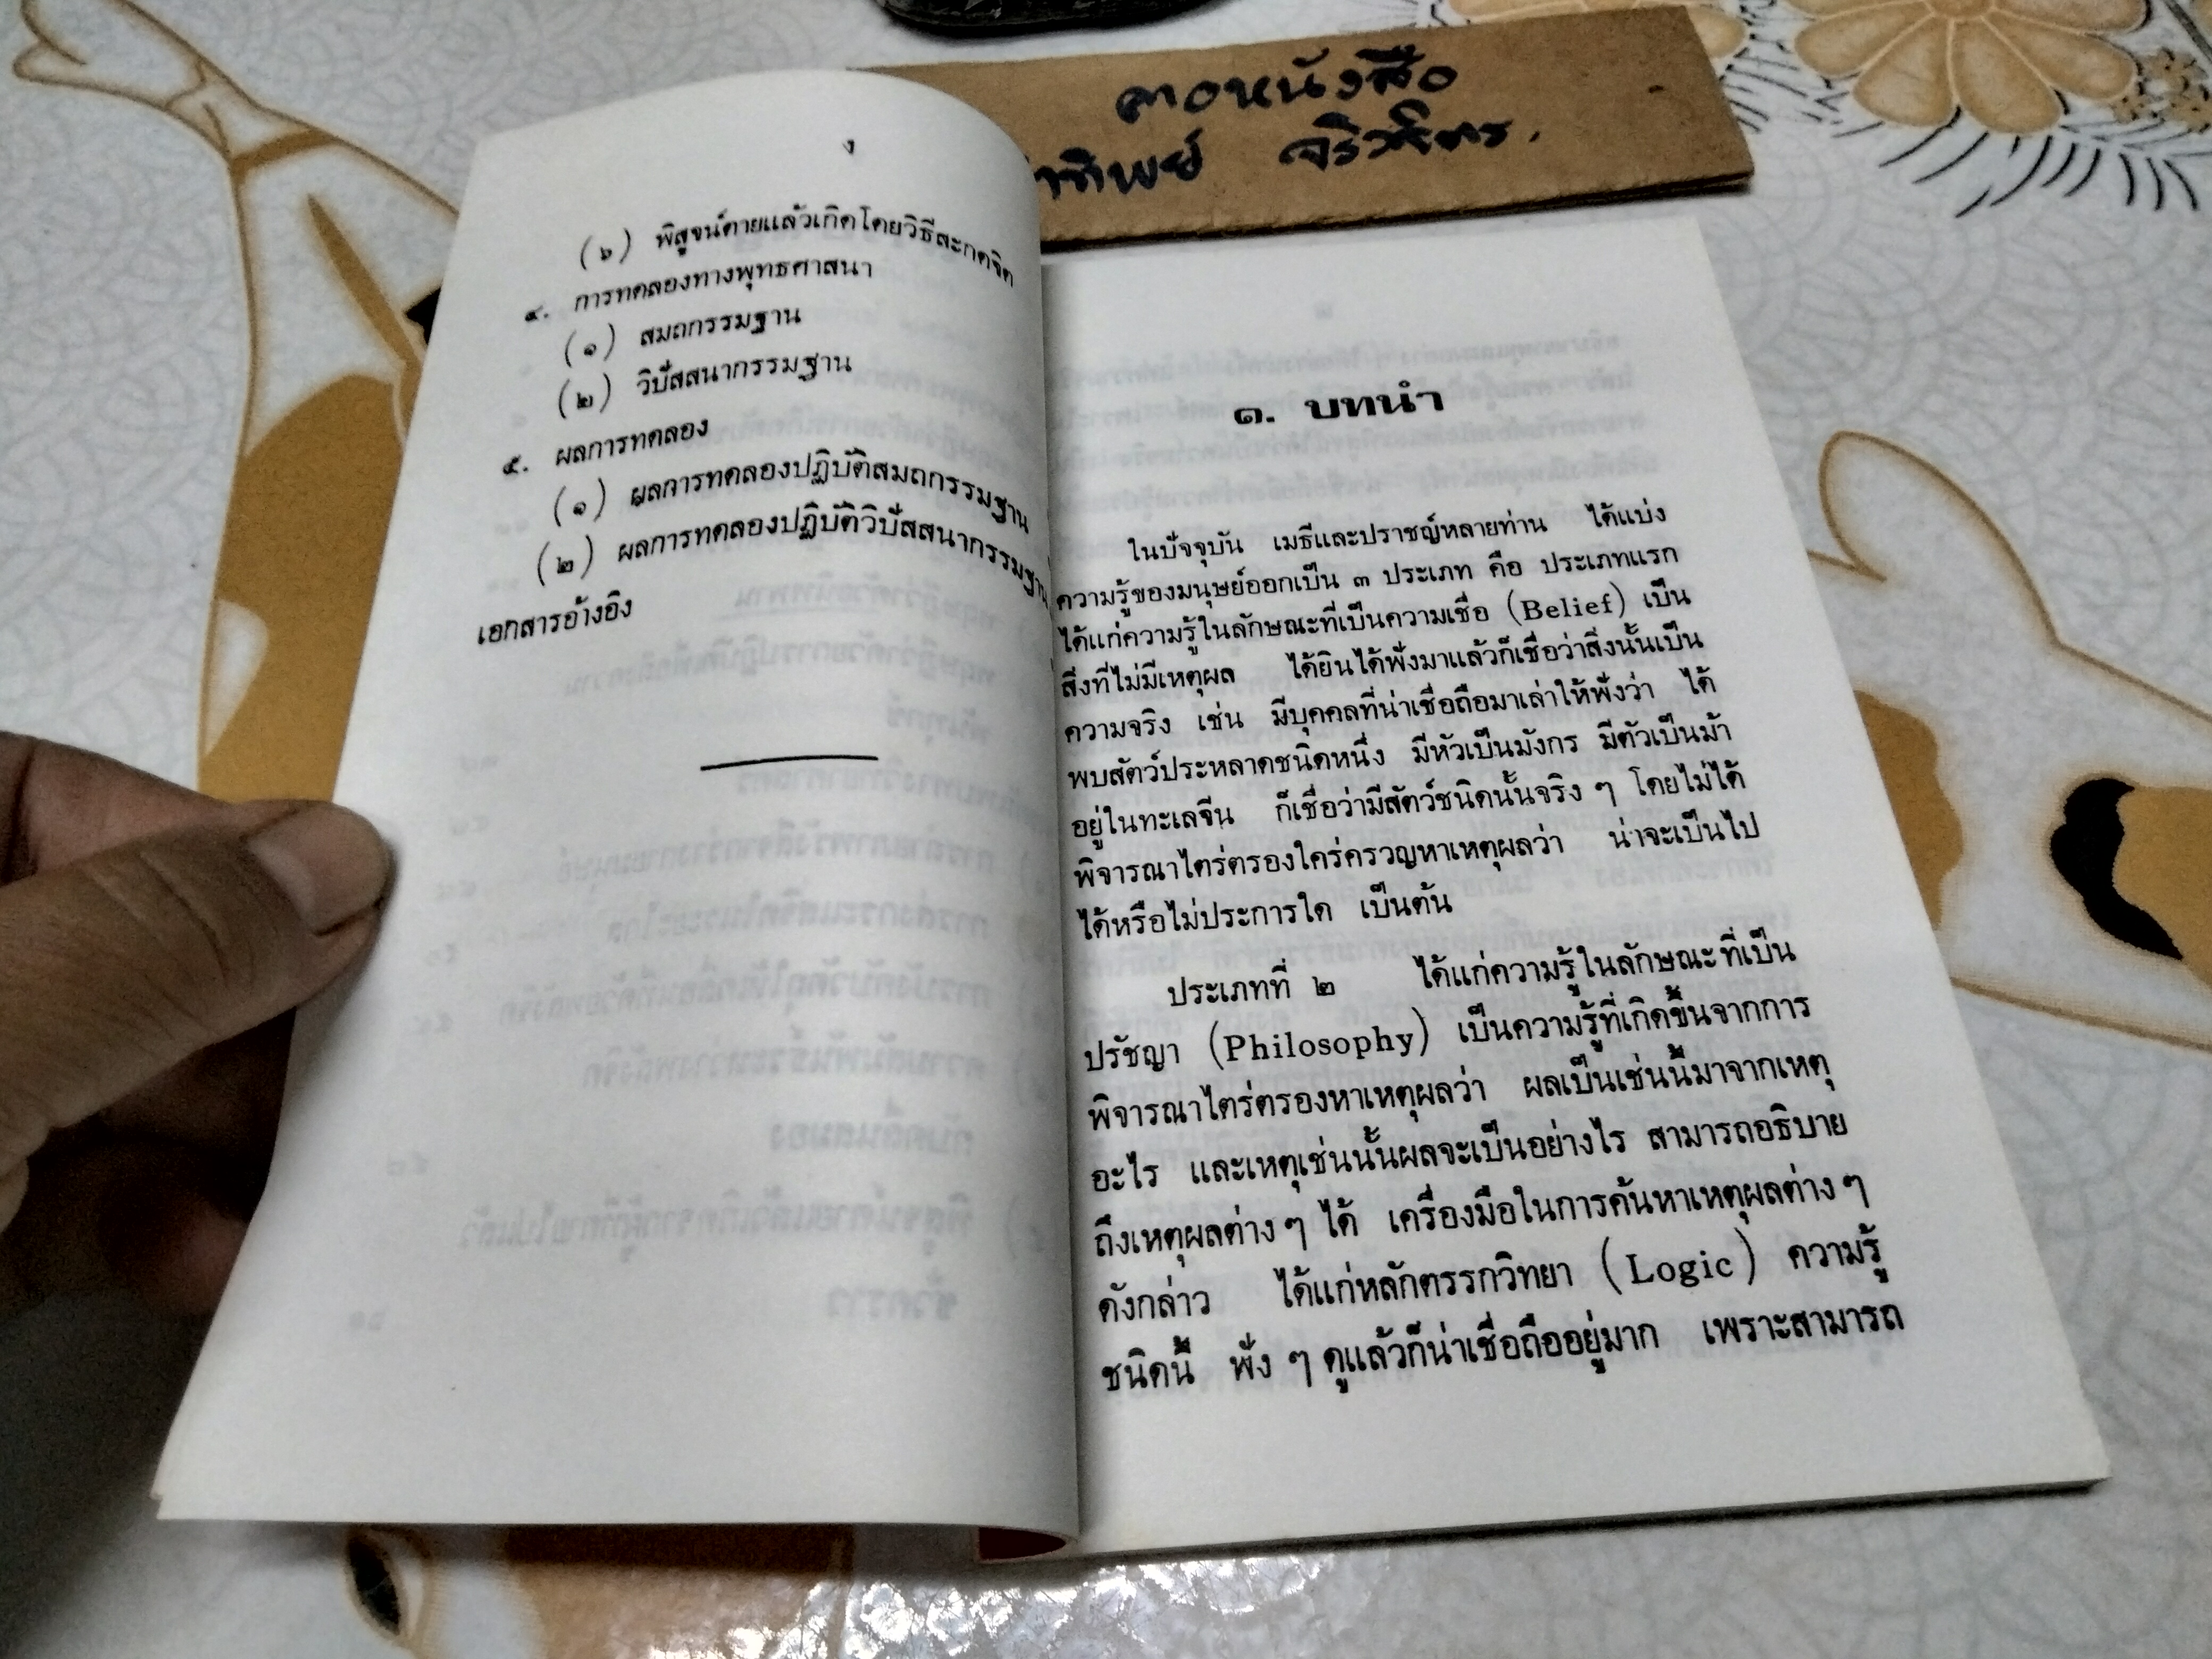 ง
(๖) พิสูจน์ตายแล้วเกิดโดยวิธีสะกดจิต
๔. การทดลองทางพุทธศาสนา
(๑) สมถกรรมฐาน
(๒) วิปัสสนากรรมฐาน
๕. ผลการทดลอง
(๑) ผลการทดลองปฏิบัติสมถกรรมฐาน
(๒) ผลการทดลองปฏิบัติวิปัสสนากรรมฐาน
เอกสารอ้างอิง
หนังสือ
๑. บทนำ
ในปัจจุบัน เมธีและปราชญ์หลายท่าน ได้แบ่ง
ความรู้ของมนุษย์ออกเป็น ๓ ประเภท คือ ประเภทแรก
ได้แก่ความรู้ในลักษณะที่เป็นความเชื่อ (Belief) เป็น
สิ่งที่ไม่มีเหตุผล ได้ยินได้ฟังมาแล้วก็เชื่อว่าสิ่งนั้นเป็น
ความจริง เช่น มีบุคคลที่น่าเชื่อถือมาเล่าให้ฟังว่า ได้
พบสัตว์ประหลาดชนิดหนึ่ง มีหัวเป็นมังกร มีตัวเป็นม้า
อยู่ในทะเลจีน ก็เชื่อว่ามีสัตว์ชนิดนั้นจริง ๆ โดยไม่ได้
พิจารณาไตร่ตรองใคร่ครวญหาเหตุผลว่า น่าจะเป็นไป
ได้หรือไม่ประการใด เป็นต้น
ประเภทที่ ๒ ได้แก่ความรู้ในลักษณะที่เป็น
ปรัชญา (Philosophy) เป็นความรู้ที่เกิดขึ้นจากการ
พิจารณาไตร่ตรองหาเหตุผลว่า ผลเป็นเช่นนี้มาจากเหตุ
อะไร และเหตุเช่นนั้นผลจะเป็นอย่างไร สามารถอธิบาย
ถึงเหตุผลต่าง ๆ ได้ เครื่องมือในการค้นหาเหตุผลต่าง ๆ
ดังกล่าว ได้แก่หลักตรรกวิทยา (Logic) ความรู้
ชนิดนี้ ฟัง ๆ ดูแล้วก็น่าเชื่อถืออยู่มาก เพราะสามารถ